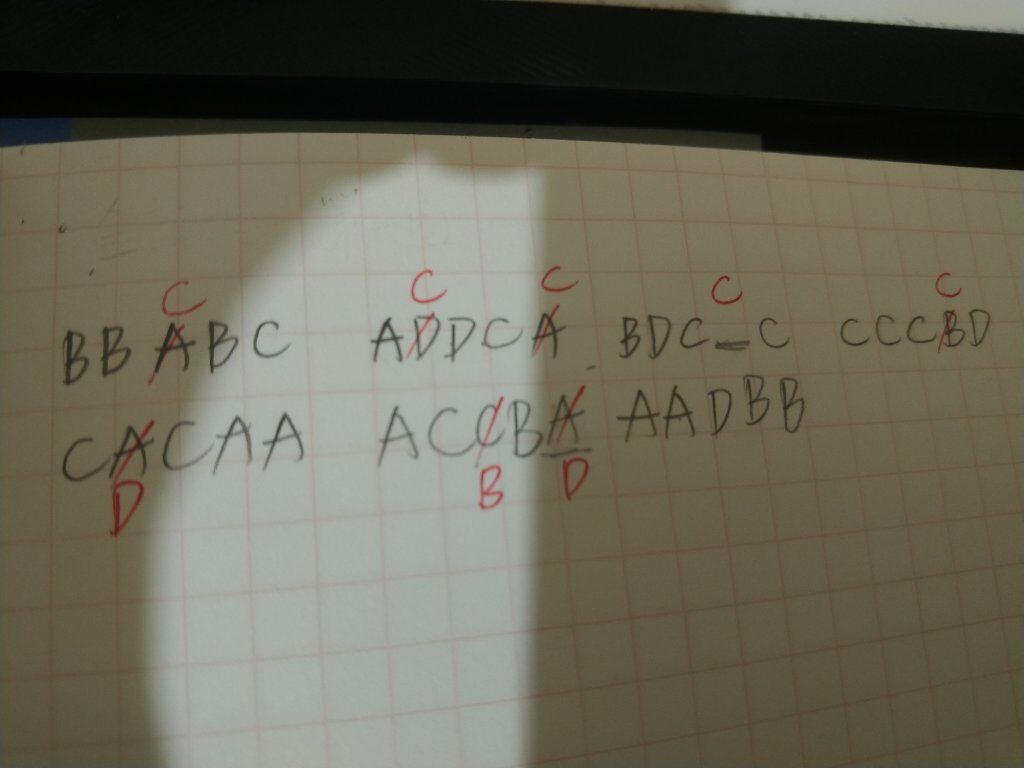 C C C C C
BBABC ADDCA BDC_C CCCBD
CACAA ACCBA AADBB
D B D